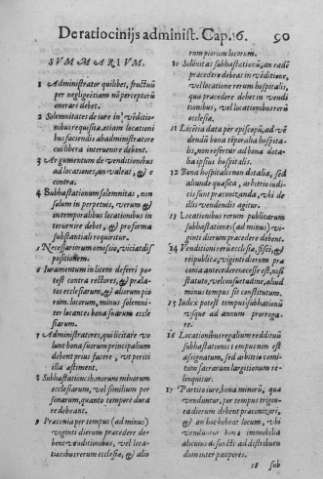 De ratiocinijs administ. Cap. 16. 90
SVMMARIVM.
1 Administrator quilibet, fructuũ
per negligentiam nõ perceptorũ
onerari debet.
2 Solemnitates de iure in vẽditio-
nibus requisitæ, etiam locationi
bus faciendis ab administratore
cuiliberæ intervenire debent.
3 Argumentum de venditionibus
ad locationes, an valeat, & è
contra.
4 Subhastationum solemnitas, non
solum in perpetuis, verum &
in temporalibus locationibus in
tervenire debet, & pro forma
substantiali requiritur.
5 Necessariorum omissio, vitiat dis
positionem.
6 Iuramentum in litem deferri po-
test contra rectores, & præla-
tos ecclesiarum, & aliorum pio
rum locorum, minus solemni-
ter locantes bona suarum eccle
siarum.
7 Administratores, qui licitare vo
lunt bona suorum principalium
debent prius facere, vt periti
illa æstiment.
8 Subhastationes bonorum minorum
ecclesiarum, vel similium per
sonarum, quanto tempore dura
re debeant.
9 Præconia per tempus (ad minus)
viginti dierum procedere de-
bent venditionibus, vel loca-
tionibus rerum ecclesiæ, & alio
rum piorum locorum.
10 Solẽnitas subhastationũ, an eadẽ
præcedere debeat in vẽditione,
vel locatione rerum hospitalis,
quæ præcedere debet in vendi
tionibus, vel locationibus rerũ
ecclesiæ.
11 Licẽtia data per episcopũ, ad vẽ
dendũ bona tẽporalia hospita-
lis, non refertur ad bona dota-
lia ipsius hospitalis.
12 Bona hospitalis non dotalia, sed
aliunde quæsita, arbitrio iudi-
cis sunt præconizanda, vbi de
illis vendendis agitur.
13 Locationibus rerum publicarum
subhastationes (ad minus) vi-
ginti dierum præcedere debent.
14 Venditioni rerũ ecclesiæ, fisci, &
reipublicæ, viginti dierum præ
conia antecedere necesse est, nisi
statuto, vel consuetudine, aliud
minus tempus sit constitutum.
15 Iudex potest tempus subhastationũ
vsque ad annum proroga-
re.
16 Locationibus regalium reddituũ
subhastationis tempus non est
assignatum, sed arbitrio comi-
tum sacrarum largitionum re-
linquitur.
17 Partitio iure, bona minorũ, quæ
venduntur, per tempus trigin-
ta dierum debent præconizari,
& an hoc habeat locum, vbi
venduntur bona immobilia
alicuius defuncti ad distribuen
dum inter pauperes.
18 Sub